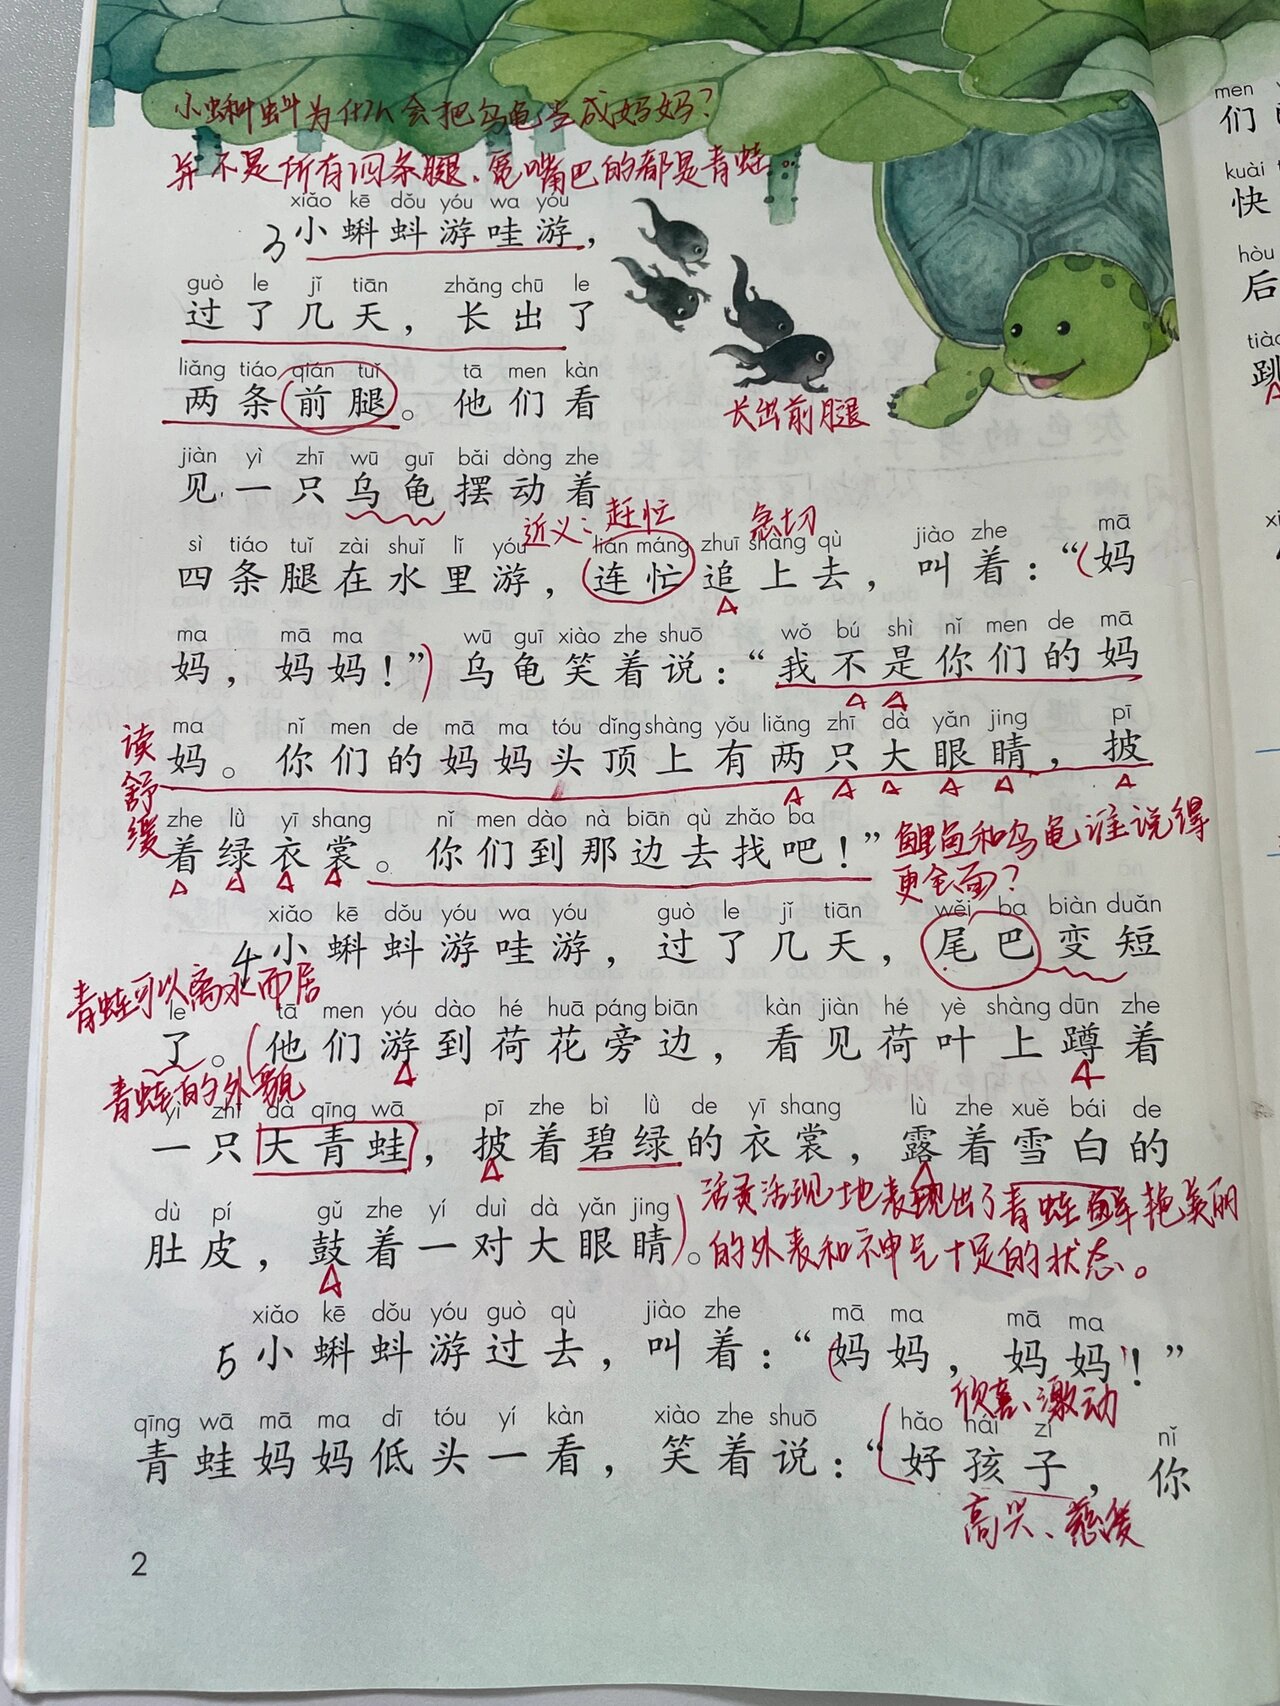 小蝌蚪为什么会把乌龟当成妈妈?
并不是所有四条腿、宽嘴巴的都是青蛙.
xiǎo kē dǒu yóu wa yóu
3小蝌蚪游哇游，
guò le jǐ tiān zhǎng chū le
过了几天，长出了
liǎng tiáo qián tuǐ tā men kàn
两条前腿。他们看
长出前腿
jiàn yì zhī wū guī bǎi dòng zhe
见一只乌龟摆动着
近义：赶忙 急切
sì tiáo tuǐ zài shuǐ lǐ yóu lián máng zhuī shàng qù jiào zhe mā
四条腿在水里游，连忙追上去，叫着：“妈
ma mā ma wū guī xiào zhe shuō wǒ bú shì nǐ men de mā
妈，妈妈！”乌龟笑着说：“我不是你们的妈
读舒缓
ma nǐ men de mā ma tóu dǐng shàng yǒu liǎng zhī dà yǎn jing pī
妈。你们的妈妈头顶上有两只大眼睛，披
zhe lǜ yī shang nǐ men dào nà biān qù zhǎo ba
着绿衣裳。你们到那边去找吧！”
鲤鱼和乌龟谁说得
更全面?
xiǎo kē dǒu yóu wa yóu guò le jǐ tiān wěi ba biàn duǎn
4小蝌蚪游哇游，过了几天，尾巴变短
青蛙可以离水而居
le tā men yóu dào hé huā páng biān kàn jiàn hé yè shàng dūn zhe
了。他们游到荷花旁边，看见荷叶上蹲着
青蛙的外貌
yì zhī dà qīng wā pī zhe bì lǜ de yī shang lù zhe xuě bái de
一只大青蛙，披着碧绿的衣裳，露着雪白的
dù pí gǔ zhe yí duì dà yǎn jing
肚皮，鼓着一对大眼睛。
活灵活现地表现出了青蛙鲜艳美丽
的外表和神气十足的状态。
xiǎo kē dǒu yóu guò qù jiào zhe mā ma mā ma
5小蝌蚪游过去，叫着：“妈妈，妈妈！”
欣喜、激动
qīng wā mā ma dī tóu yí kàn xiào zhe shuō hǎo hái zi nǐ
青蛙妈妈低头一看，笑着说：“好孩子，你
高兴、慈爱
2
men
们
kuài
快
hòu
后
tiào
跳